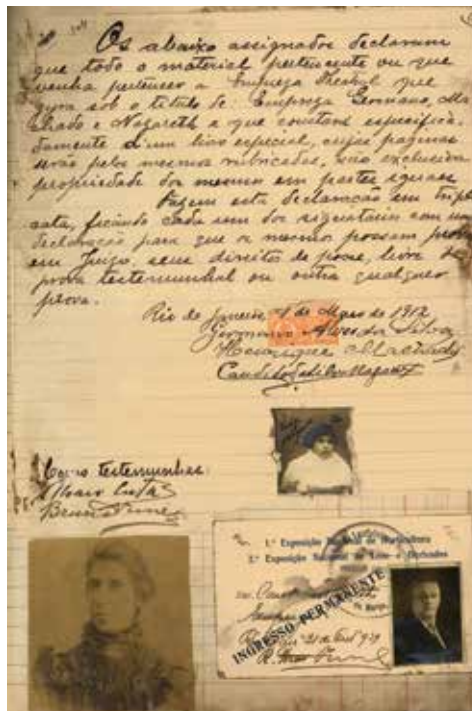 Os abaixo assignados declaram
que todo o material pertencente ou que
venha pertencer a Empreza Theatral que
gyra sob o titulo de Empreza Germano, Ma
chado e Nazareth e que constam especifica-
damente d'um livro especial, cujas paginas
serão pelos mesmos rubricadas, são exclusiva
propriedade dos mesmos em partes iguaes.
Fazem esta declaração em tripli
cata, ficando cada um dos signatarios com uma
declaração para que os mesmos possam provar
em Juizo, seus direitos de posse, livre de
prova testemunhal ou outra qualquer
prova.
Rio de Janeiro de Maio de 1912
Germano Alves da Silva
Henrique Machado
Candido da Silva Nazareth
Como testemunhas:
Costa
Bruno Nunes
1.ª Exposição Nacional de Horticultura
2.ª Exposição Nacional de Leite e Derivados
INGRESSO PERMANENTE